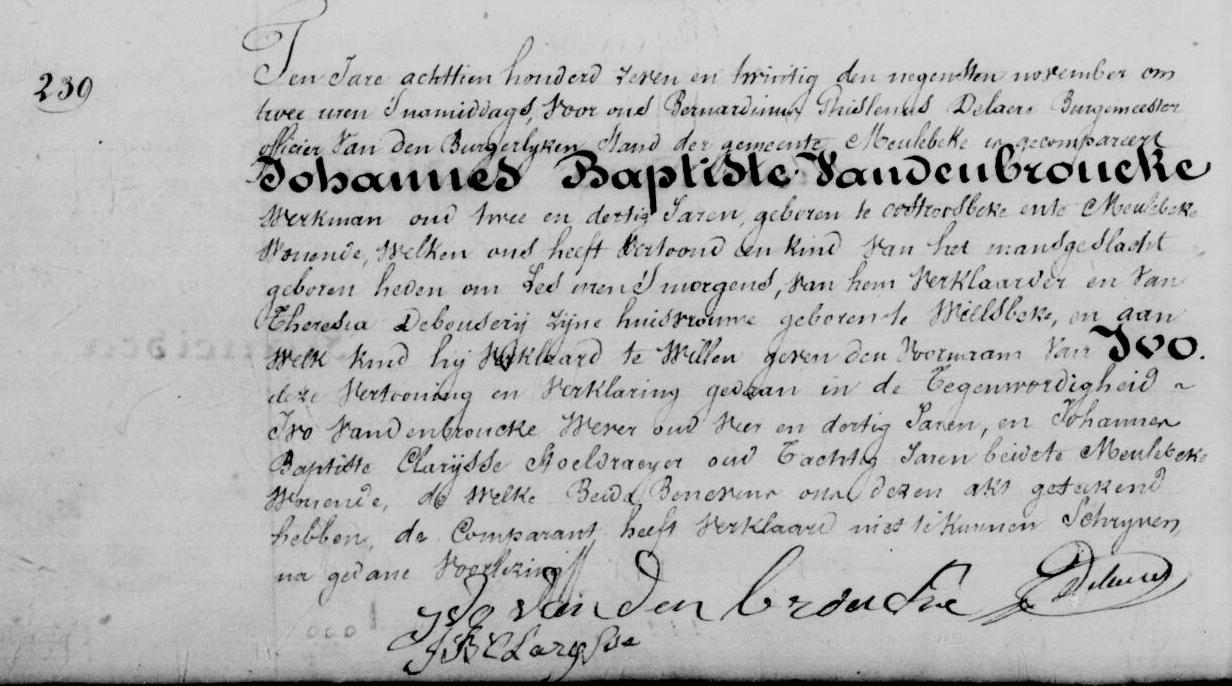 239
Ten Jare achttien honderd zeven en twintig den negensten november om
twee uren Snamiddags, Voor ons Bernardinus Ghislenus Delaere Burgemeester
officier Van den Burgerlyken Stand der gemeente Meulebeke is gecompareert
Johannes Baptiste Vandenbroucke
Werkman oud twee en dertig Jaren, geboren te oostroosbeke ente Meulebeke
Wonende, Welken ons heeft Vertoond een kind Van het mansgeslacht
geboren heden om Ses uren Smorgens, Van hem Verklaarder en Van
Theresia Debouserij zijne huisvrouwe geboren te Wielsbeke, en aan
Welk kind hij Verklaard te Willen geven den Voornaam Van Ivo.
deze Vertooning en Verklaring gedaan in de Tegenwordigheid ~
Ivo Vandenbroucke Wever oud Vier en dertig Jaren, en Johannes
Baptiste Clarijsse Stoeldraeyer oud Tachtig Jaren beide te Meulebeke
Wonende, de Welke Beide Benevens ons dezen akt geteekend
hebben, de Comparant heeft Verklaard niet te kunnen Schryven,
na gedane Voorlezing
Ivo Van den broucke Delaere
J B Clarysse